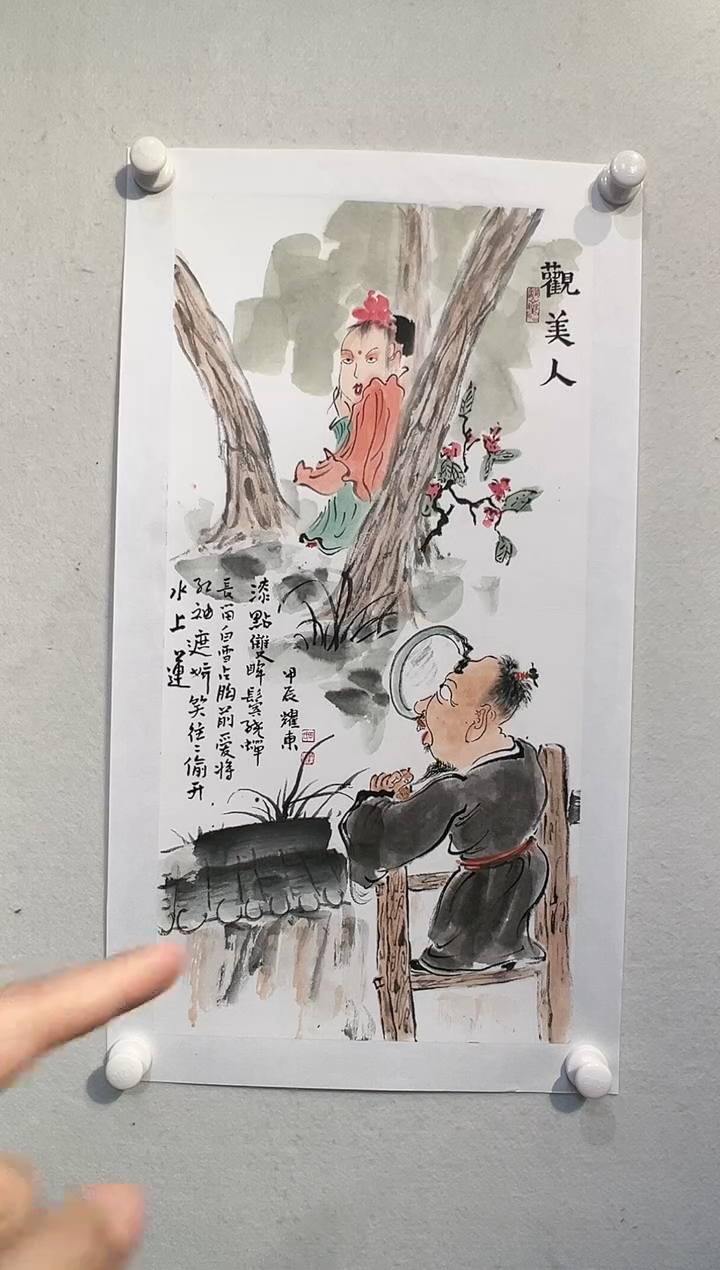 觀美人
漆點雙眸鬢绕蟬
長留白雪占胸前爱将
红袖遮娇笑往〻偷开
水上蓮
甲辰 耀東